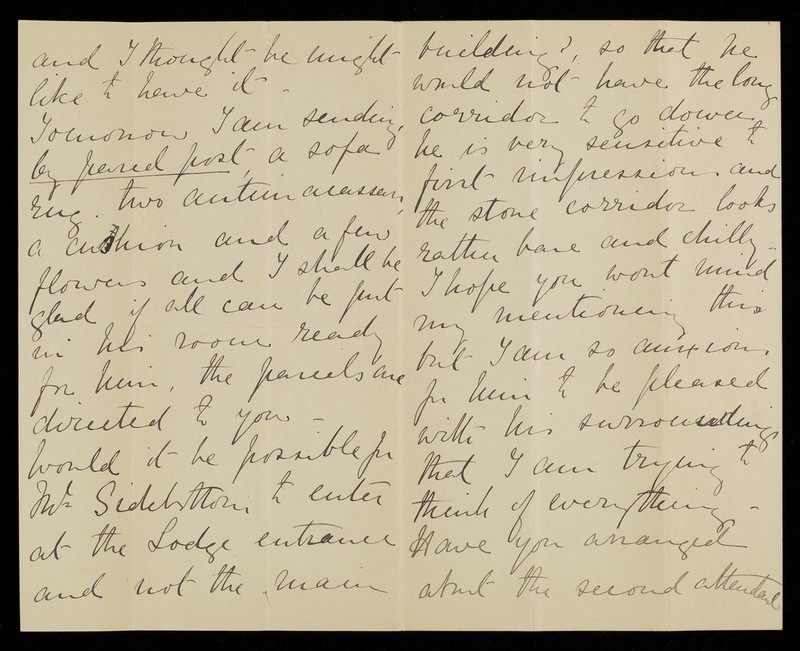 and I thought he might
like to have it -
Tomorrow I am sending,
by parcel post, a sofa
rug. two antimacassars,
a cushion and a few
flowers and I shall be
glad if all can be put
in his room ready
for him, the parcels are
directed to you -
Would it be possible for
Mr Sidebottom to enter
at the Lodge entrance
and not the main
building?, so that he
would not have the long
corridor to go down
he is very sensitive to
first impression. and
the stone corridor looks
rather bare and chilly -
I hope you wont mind
my mentioning this
but I am so anxious
for him to be pleased
with his surroundings
that I am trying to
think of everything -
Have you arranged
about the second attendant